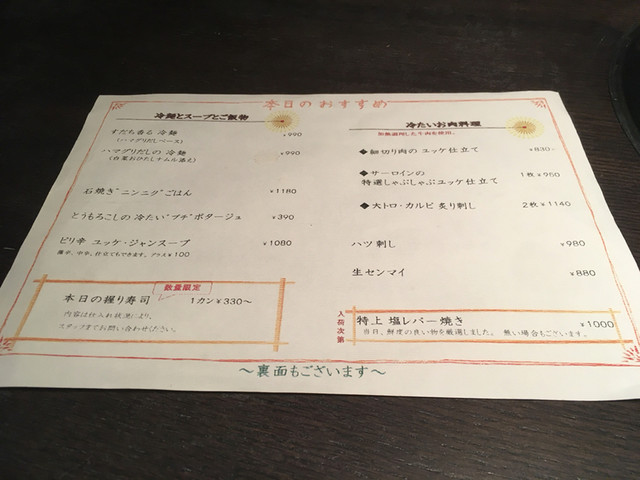 本日のおすすめ
冷麺とスープとご飯物
すだち香る 冷麺 ¥990
(ハマグリだしベース)
ハマグリだしの 冷麺 ¥990
(白菜おひたしナムル添え)
石焼き"ニンニク"ごはん ¥1180
とうもろこしの 冷たい"プチ"ポタージュ ¥390
ピリ辛 ユッケ・ジャンスープ ¥1080
数量限定
本日の握り寿司 1カン¥330～
内容は仕入れ状況により、
スタッフまでお問い合わせください。
冷たいお肉料理
◆細切り肉の ユッケ仕立て ¥830-
◆サーロインの
特選しゃぶしゃぶユッケ仕立て 1枚¥950
◆大トロ・カルビ 炙り刺し 2枚¥1140
ハツ刺し ¥980
生センマイ ¥880
入荷次第
特上 塩レバー焼き ¥1000
当日、鮮度の良い物を厳選しました。 無い場合もございます。
～裏面もございます～